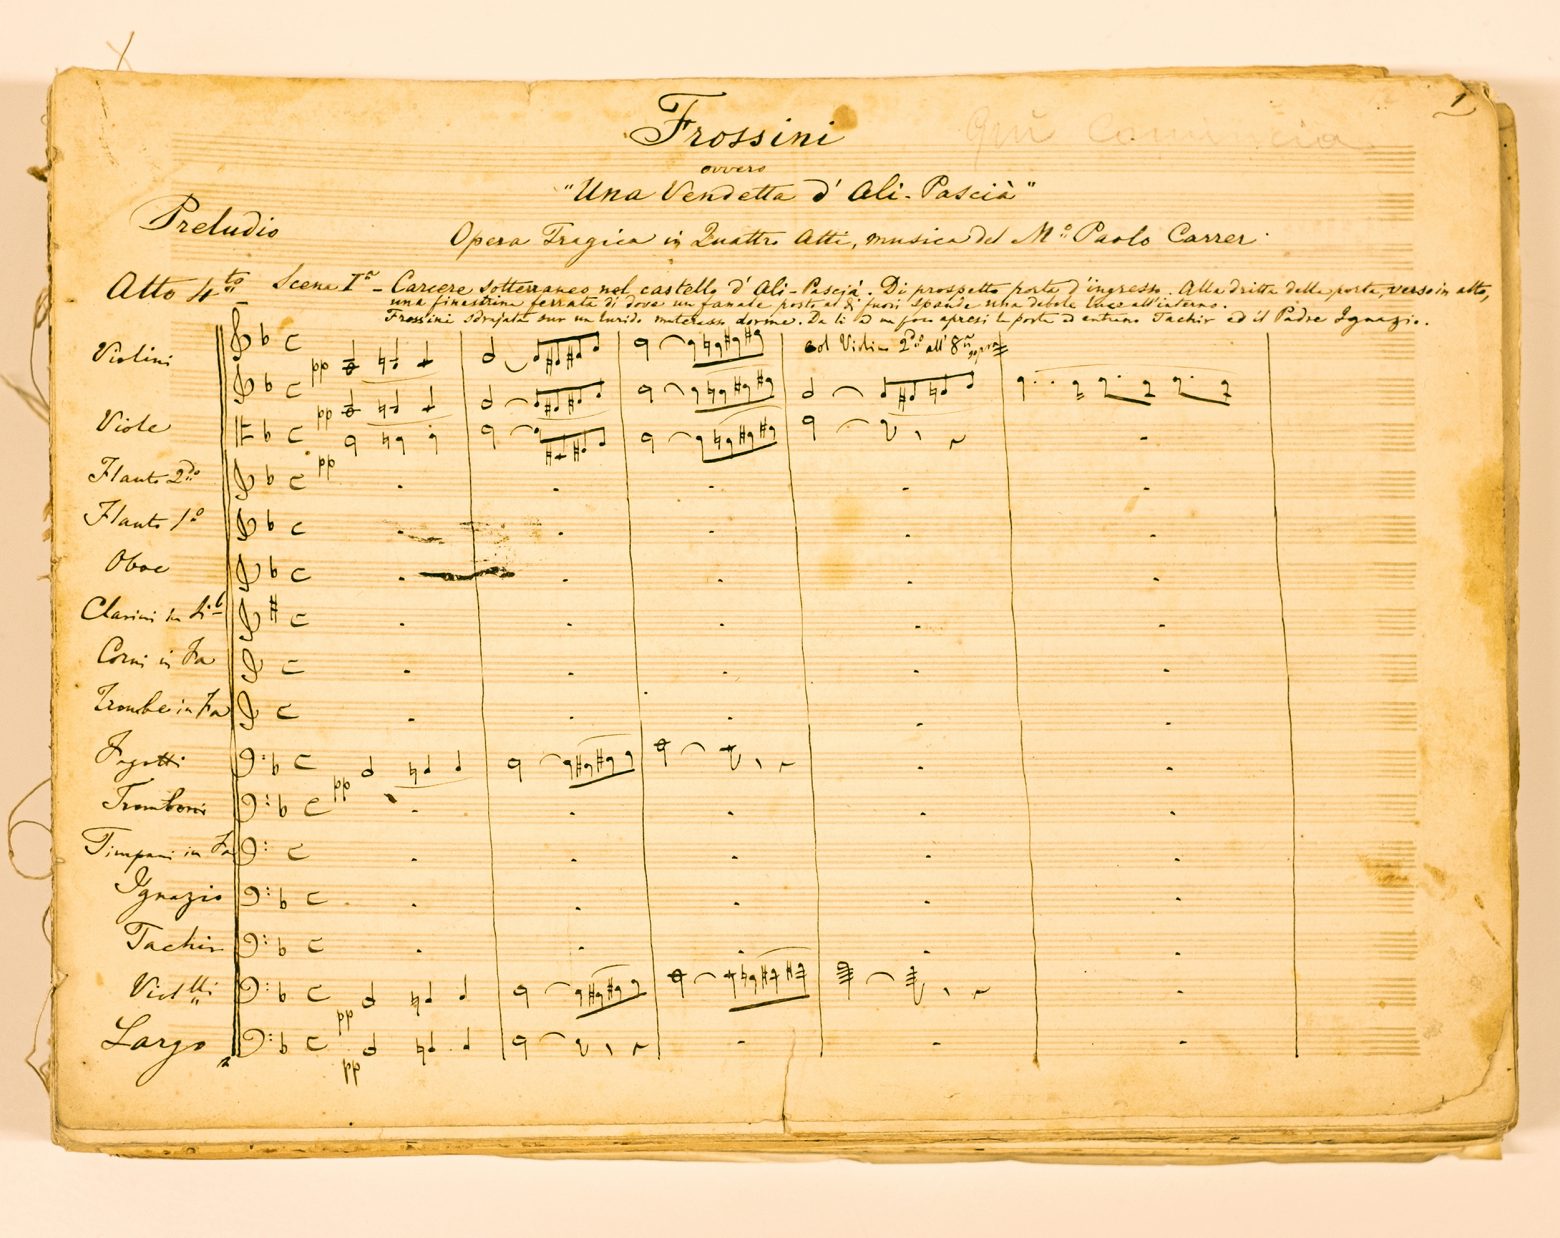 1
Frossini
Quì Comincia
ovvero
"Una Vendetta d' Ali-Pascià"
Preludio
Opera Tragica in Quattro Atti, musica del M.o Paolo Carrer
Atto 4to Scena Ia - Carcere sotterraneo nel castello d' Ali-Pascià. Di prospetto porta d'ingresso. Alla dritta della porta, verso in alto,
una finestrina ferrata di dove un fanale posto al di fuori spande una debole luce all'interno.
Frossini sdrajata sur un lurido materasso dorme. Da lì a un poco apresi la porta ed entrano Tachir ed il Padre Ignazio.
Violini
pp
col Violino 2do all' 8va sopra
pp
Viole
pp
Flauto 2do
Flauto 1o
Oboe
Clarini in Sib
Corni in Fa
Trombe in Fa
Fagotti
pp
Tromboni
Timpani in Fa
Ignazio
Tachir
Viollli
pp
Largo
pp